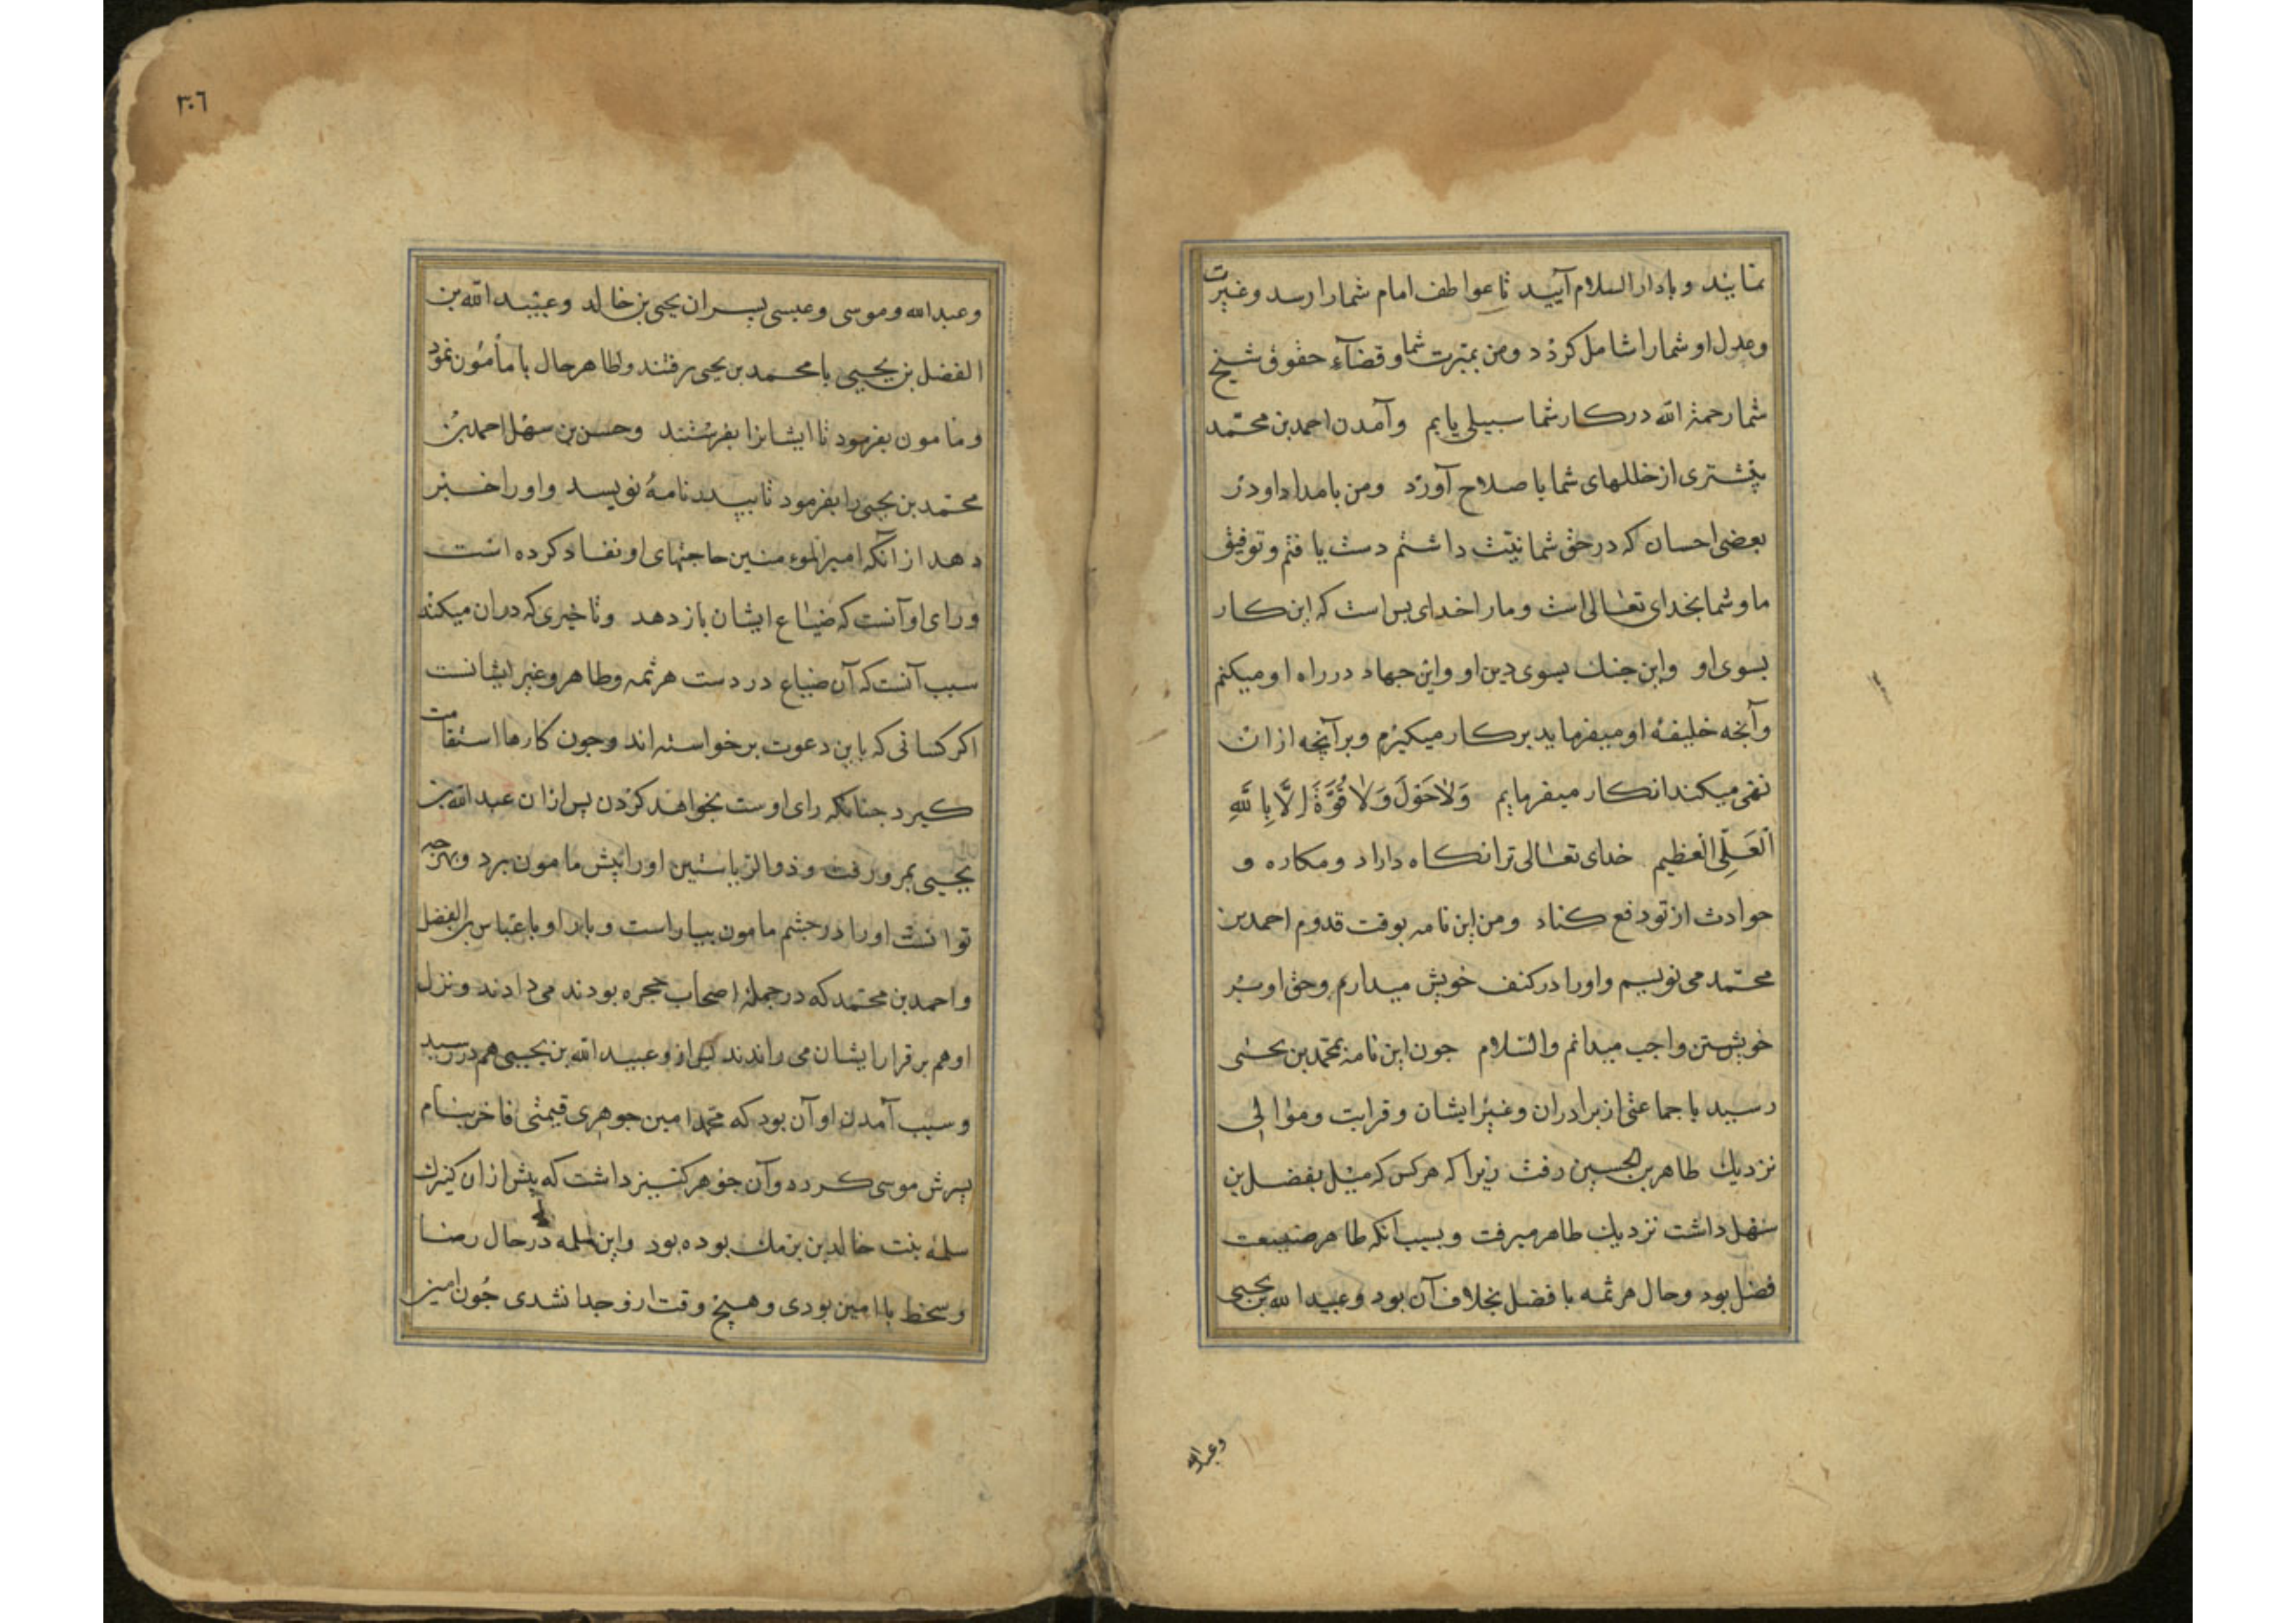 نمایند و بادار السلام آیید تا عواطف امام شما را رسد و غیرت
و عدل او شما را شامل کردد و من بمبرت شما و قضآء حقوق شیخ
شما رحمة الله در کار شما سبیلی یابم وآمدن احمد بن محمّد
بیشتری از خللهای شما با صلاح آورد ومن بامداد او در
بعضی احسان که در حق شما نیّت داشتم دست یافتم و توفیق
ما و شما بخدای تعالی است و ما را خدای بس است که این کار
بسوی او واین جنك بسوی دین او واین جهاد در راه او میکنم
وآنچه خلیفهٔ او میفرماید بر کار میکیرم وبرآنچه ازان
نهی میکند انکار میفرمایم وَلاحَوْلَ وَلا قُوَّةَ اِلَّا بِاللَّهِ
اَلْعَلِّى الْعَظیم خدای تعالی ترا نکاه داراد ومکاره و
حوادث از تو دفع کناد ومن این نامه بوقت قدوم احمد بن
محمّد می نویسم واورا در کنف خویش میدارم وحق او بر
خویشتن واجب میدانم والسّلام جون این نامه بمحمّد بن یحیی
رسید با جماعتی از برادران وغیر ایشان وقرابت وموالی
نزدیك طاهر بن الحسین رفت زیرا که هر کس که میل بفضل بن
سهل داشت نزدیك طاهر میرفت وبسبب آنکه طاهر صنیعت
فضل بود وحال هرثمه با فضل بخلاف آن بود وعبید الله بن یحیی
وعبدالله
٣٠٦
وعبدالله وموسی وعیسی پسران یحیی بن خالد وعبید الله بن
الفضل بن یحیی با محمد بن یحیی برفتند وطاهر حال با مأمون نمود
ومامون بفرمود تا ایشانرا بفرستند وحسن بن سهل احمد بن
محمّد بن یحیی را بفرمود تا بپدر نامهٔ نویسد واورا خبر
دهد از آنکه امیرالمؤمنین حاجتهای او نفاد کرده است
ورای او آنست که ضیاع ایشان باز دهد وتاخیری که دران میکند
سبب آنست که آن ضیاع در دست هرثمه وطاهر وغیر ایشانست
اکر کسانی که باین دعوت برخواسته اند وجون کارها استقامت
کیرد جنانکه رای اوست بخواهد کردن پس ازان عبد الله بن
یحیی بمرو رفت وذو الریاستین اورا پیش مامون برد وبهرچه
توانست اورا در جشم مامون بیاراست وبار او با عبّاس بن الفضل
واحمد بن محمّد که در جملهٔ اصحاب حجره بودند می دادند ونزل
او هم بر قرار ایشان می راندند پس از وعبید الله بن یحیی هم در رسید
وسبب آمدن او آن بود که محمّد امین جوهری قیمتی فاخر بنام
پسرش موسی کردد وآن جوهر کنیز داشت که پیش ازان کنیزك
سلمه بنت خالد بن برمك بوده بود واین سلمه در حال رضا
وسخط با امین بودی وهیچ وقت ازو جدا نشدی جُون امین